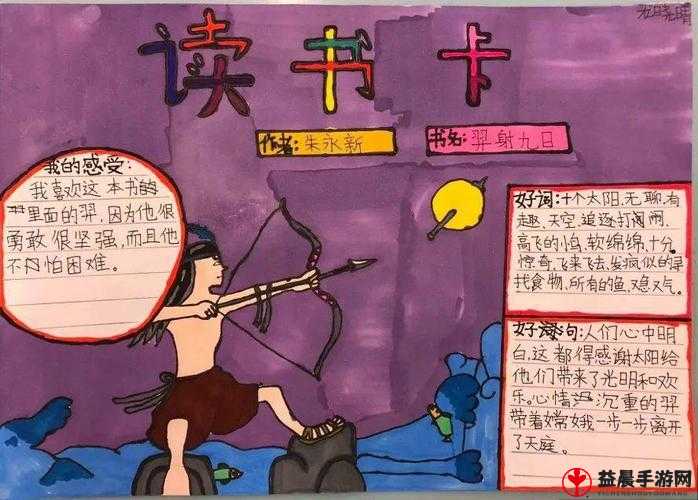 读书卡
作者:朱永新
书名:羿射九日
我的感受:
我喜欢这本书的
里面的羿,因为他很
勇敢很坚强,而且他
不怕困难。
好词:十个太阳,无聊,有
趣、天空、追逐打闹闹,
高飞的小鸟,软绵绵,十分
惊奇,飞来飞去,发疯似的寻
找食物,所有的鱼,叹息
好句:人们心中明
白,这都得感谢太阳给
他们带来了光明和欢
乐。心情沉重的羿
带着嫦娥一步一步离开
了天庭。
益晨手游网
YICHENSHOUYOUWANG